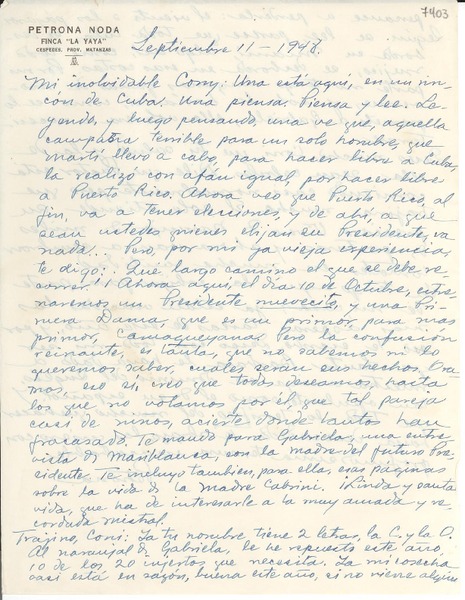 7403
PETRONA NODA
FINCA "LA YAYA"
CESPEDES. PROV. MATANZAS
Septiembre 11-1948.
Mi inolvidable Cony: Una está aquí, en un rin-
con de Cuba. Una piensa. Piensa y lee. Le-
yendo, y luego pensando, una ve que, aquella
campaña terrible para un solo hombre, que
Martí llevó a cabo, para hacer libre a Cuba,
la realizó con afan igual, por hacer libre
a Puerto Rico. Ahora veo que Puerto Rico, al
fin, va a tener elecciones, y de ahi, a que
sean ustedes mienes elijan su Presidente, va
nada... Pero, por mi ya vieja experiencia,
te digo: Que largo camino el que se debe re-
correr! Ahora aquí, el dia 10 de Octubre, estre-
naremos un Presidente nuevecito, y una Pri-
mera Dama, que es un primor, para mas
primor, Camagueyana. Pero la confusión
reinante, es tanta, que no sabemos ni lo
queremos saber, cuales serán sus hechos.
mos, eso sí, creo que todos deseamos, hasta
los que no votamos por él, que tal pareja
casi de niños, acierte donde tantos han
fracasado. Te mando para Gabriela, una entre-
vista de Mariblanca, con la madre del futuro Pre-
sidente. Te incluyo tambien, para ella, esas páginas
sobre la vida de la Madre Cabrini. ¡Linda y santa
vida, que ha de interesarle a la muy amada y re-
cordada mistral.
Trajino, Coni: La tu nombre, tiene 2 letras, la C. y la O.
Al naranjal d. Gabriela, le he repuesto este año,
10 de los 20 injertos que necesita. La mi cosecha
casi está en sazón, buena este año, si no viene algun